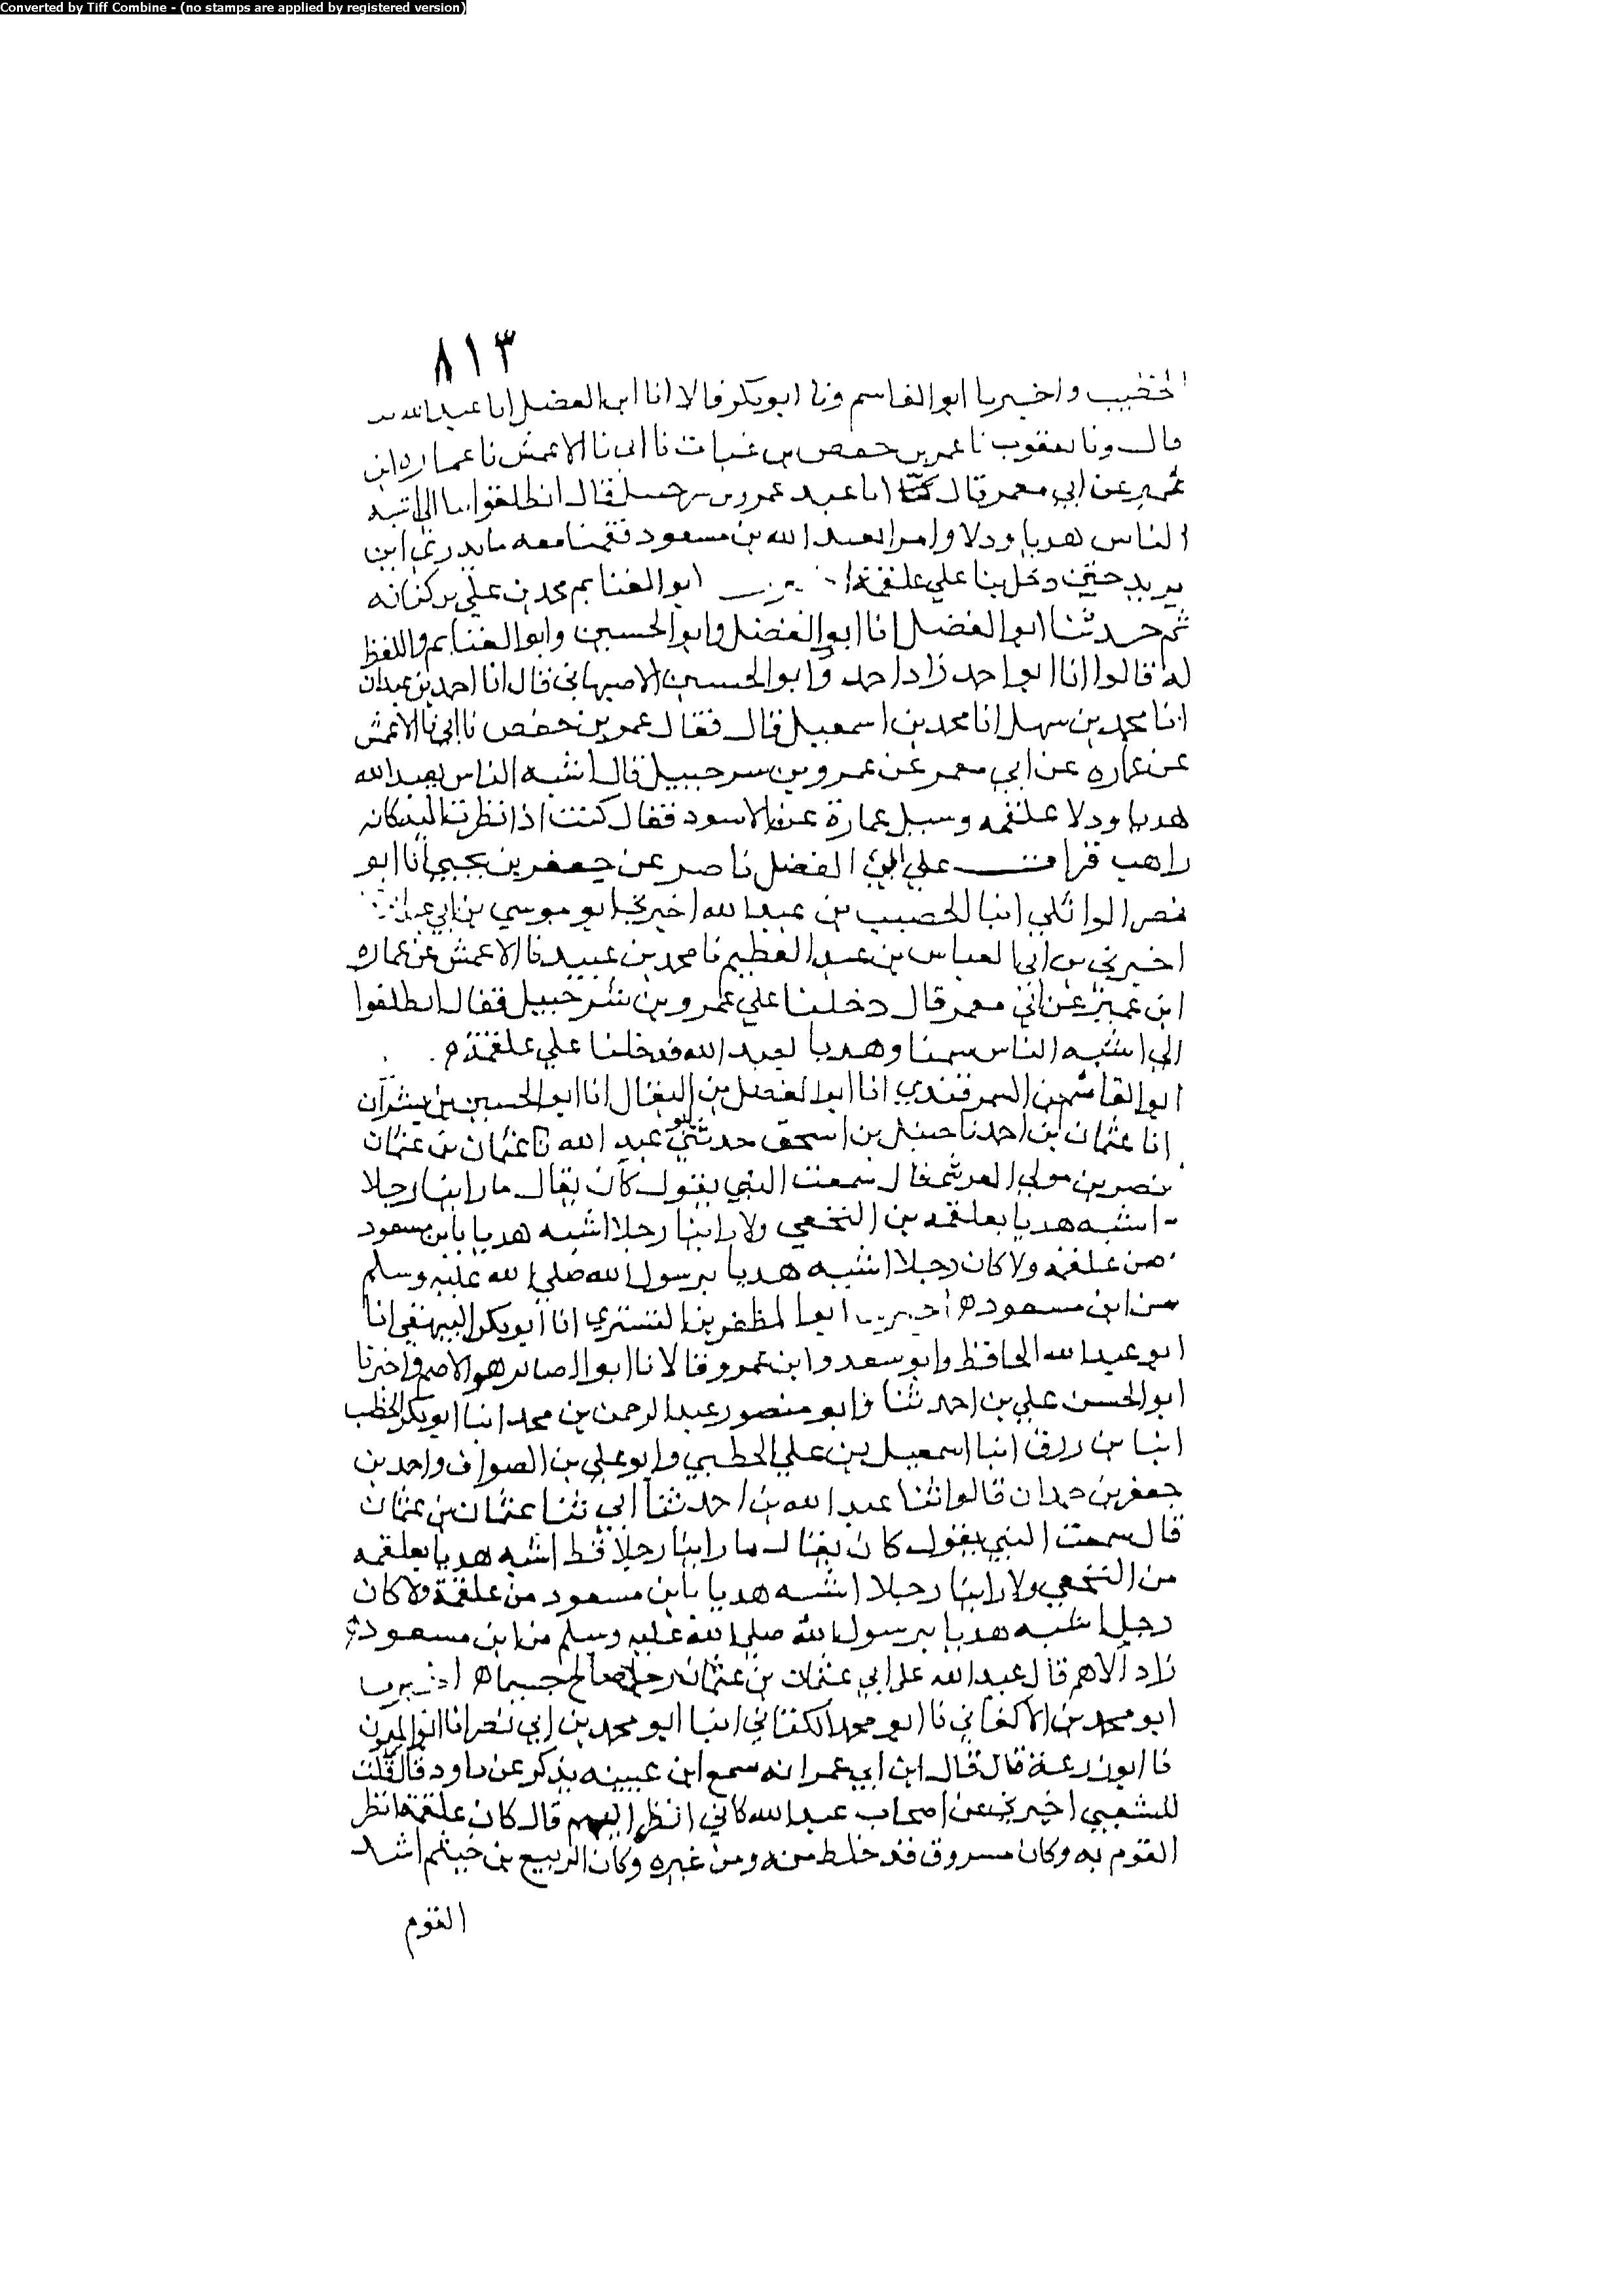 Converted by Tiff Combine - (no stamps are applied by registered version)
٨١٣
الخطيب واخبرنا ابو القاسم ونا ابو بكر قالا انا ابن الفضل انا عبد الله
قال ونا يعقوب نا عمر بن حفص بن غياث نا ابي نا الاعمش نا عماره ابن
عمير عن ابي معمر قال كنا عند عمرو بن شرحبيل فقال انطلقوا بنا الى اشبه
الناس هديا ودلا وامرا لعبد الله بن مسعود فقمنا معه ما يدري اين
يريد حتى دخل بنا علي علقمة ابو الغنايم محمد بن علي
ثم حدثنا ابو الفضل انا ابو الفضل وابو الحسين وابو الغنايم واللفظ
له قالوا انا ابو احمد زاد احمد وابو الحسين الاصبهاني قال انا احمد بن عبدان
انا محمد بن سهل انا محمد بن اسمعيل قال فقال عمر بن حفص نا ابي نا الاعمش
عن عماره عن ابي معمر عن عمرو بن سرحبيل قال اشبه الناس بعبد الله
هديا ودلا علقمه وسيل عمارة عن الاسود فقال كنت اذا نظرت اليه كانه
راهب قرات علي ابي الفضل ناصر عن جعفر بن يحيي انا ابو
نصر الوائلي انبا الخصيب بن عبد الله اخبرني ابو موسي بن ابي عبد
اخبرني ابي العباس بن عبد العظيم نا محمد بن عبيد نا الاعمش عن عماره
ابن عمير عن ابي معمر قال دخلنا علي عمرو بن شرحبيل فقال انطلقوا
الي اشبه الناس سمتا وهديا لعبد الله فدخلنا علي علقمة
ابو القاسم بن السمرقندي انا ابو الفضل بن البقال انا ابو الحسين بن بشران
انا عثمان بن احمد نا حنبل بن اسحق حدثني ابو عبد الله نا عثمان بن عثمان
قال سمعت البتي يقول كان يقال ما راينا رجلا
اشبه هديا بعلقمه بن النخعي ولا راينا رجلا اشبه هديا بابن مسعود
من علقمه ولا كان رجلا اشبه هديا برسول الله صلي الله عليه وسلم
من ابن مسعوده اخبرنا ابو المظفر بن التستري انا ابو بكر البيهقي انا
ابو عبد الله الحافظ وابو سعد وابن عمرو قالا نا ابو العباس هو الاصم واخبرنا
ابو الحسن علي بن احمد ثنا وابو منصور عبد الرحمن بن محمد انبا ابو بكر الخطيب
انبا بن رزق انبا اسمعيل بن علي الخطبي وابو علي بن الصواف واحمد بن
جعفر بن حمدان قالوا ثنا عبد الله بن احمد ثنا ابي ثنا عثمان بن عثمان
قال سمعت البتي يقول كان يقال ما راينا رجلا قط اشبه هديا بعلقمه
من النخعي ولا راينا رجلا اشبه هديا بابن مسعود من علقمة ولا كان
رجل اشبه هديا برسول الله صلي الله عليه وسلم من ابن مسعود
زاد الاصم قال عبد الله عن ابي عثمان بن عثمان رجل صالح اخبرنا
ابو محمد بن الاكفاني نا ابو محمد الكتاني انبا ابو محمد بن ابي نصر انا ابو الميمون
نا ابو زرعة قال قال ابن ابي عمر انه سمع ابن عيينه يذكر عن داود قال قلت
للشعبي اخبرني عن اصحاب عبد الله كاني انظر اليهم قال كان علقمة انظر
القوم به وكان مسروق قد خلط منه ومن غيره وكان الربيع بن خيثم اشد
القوم